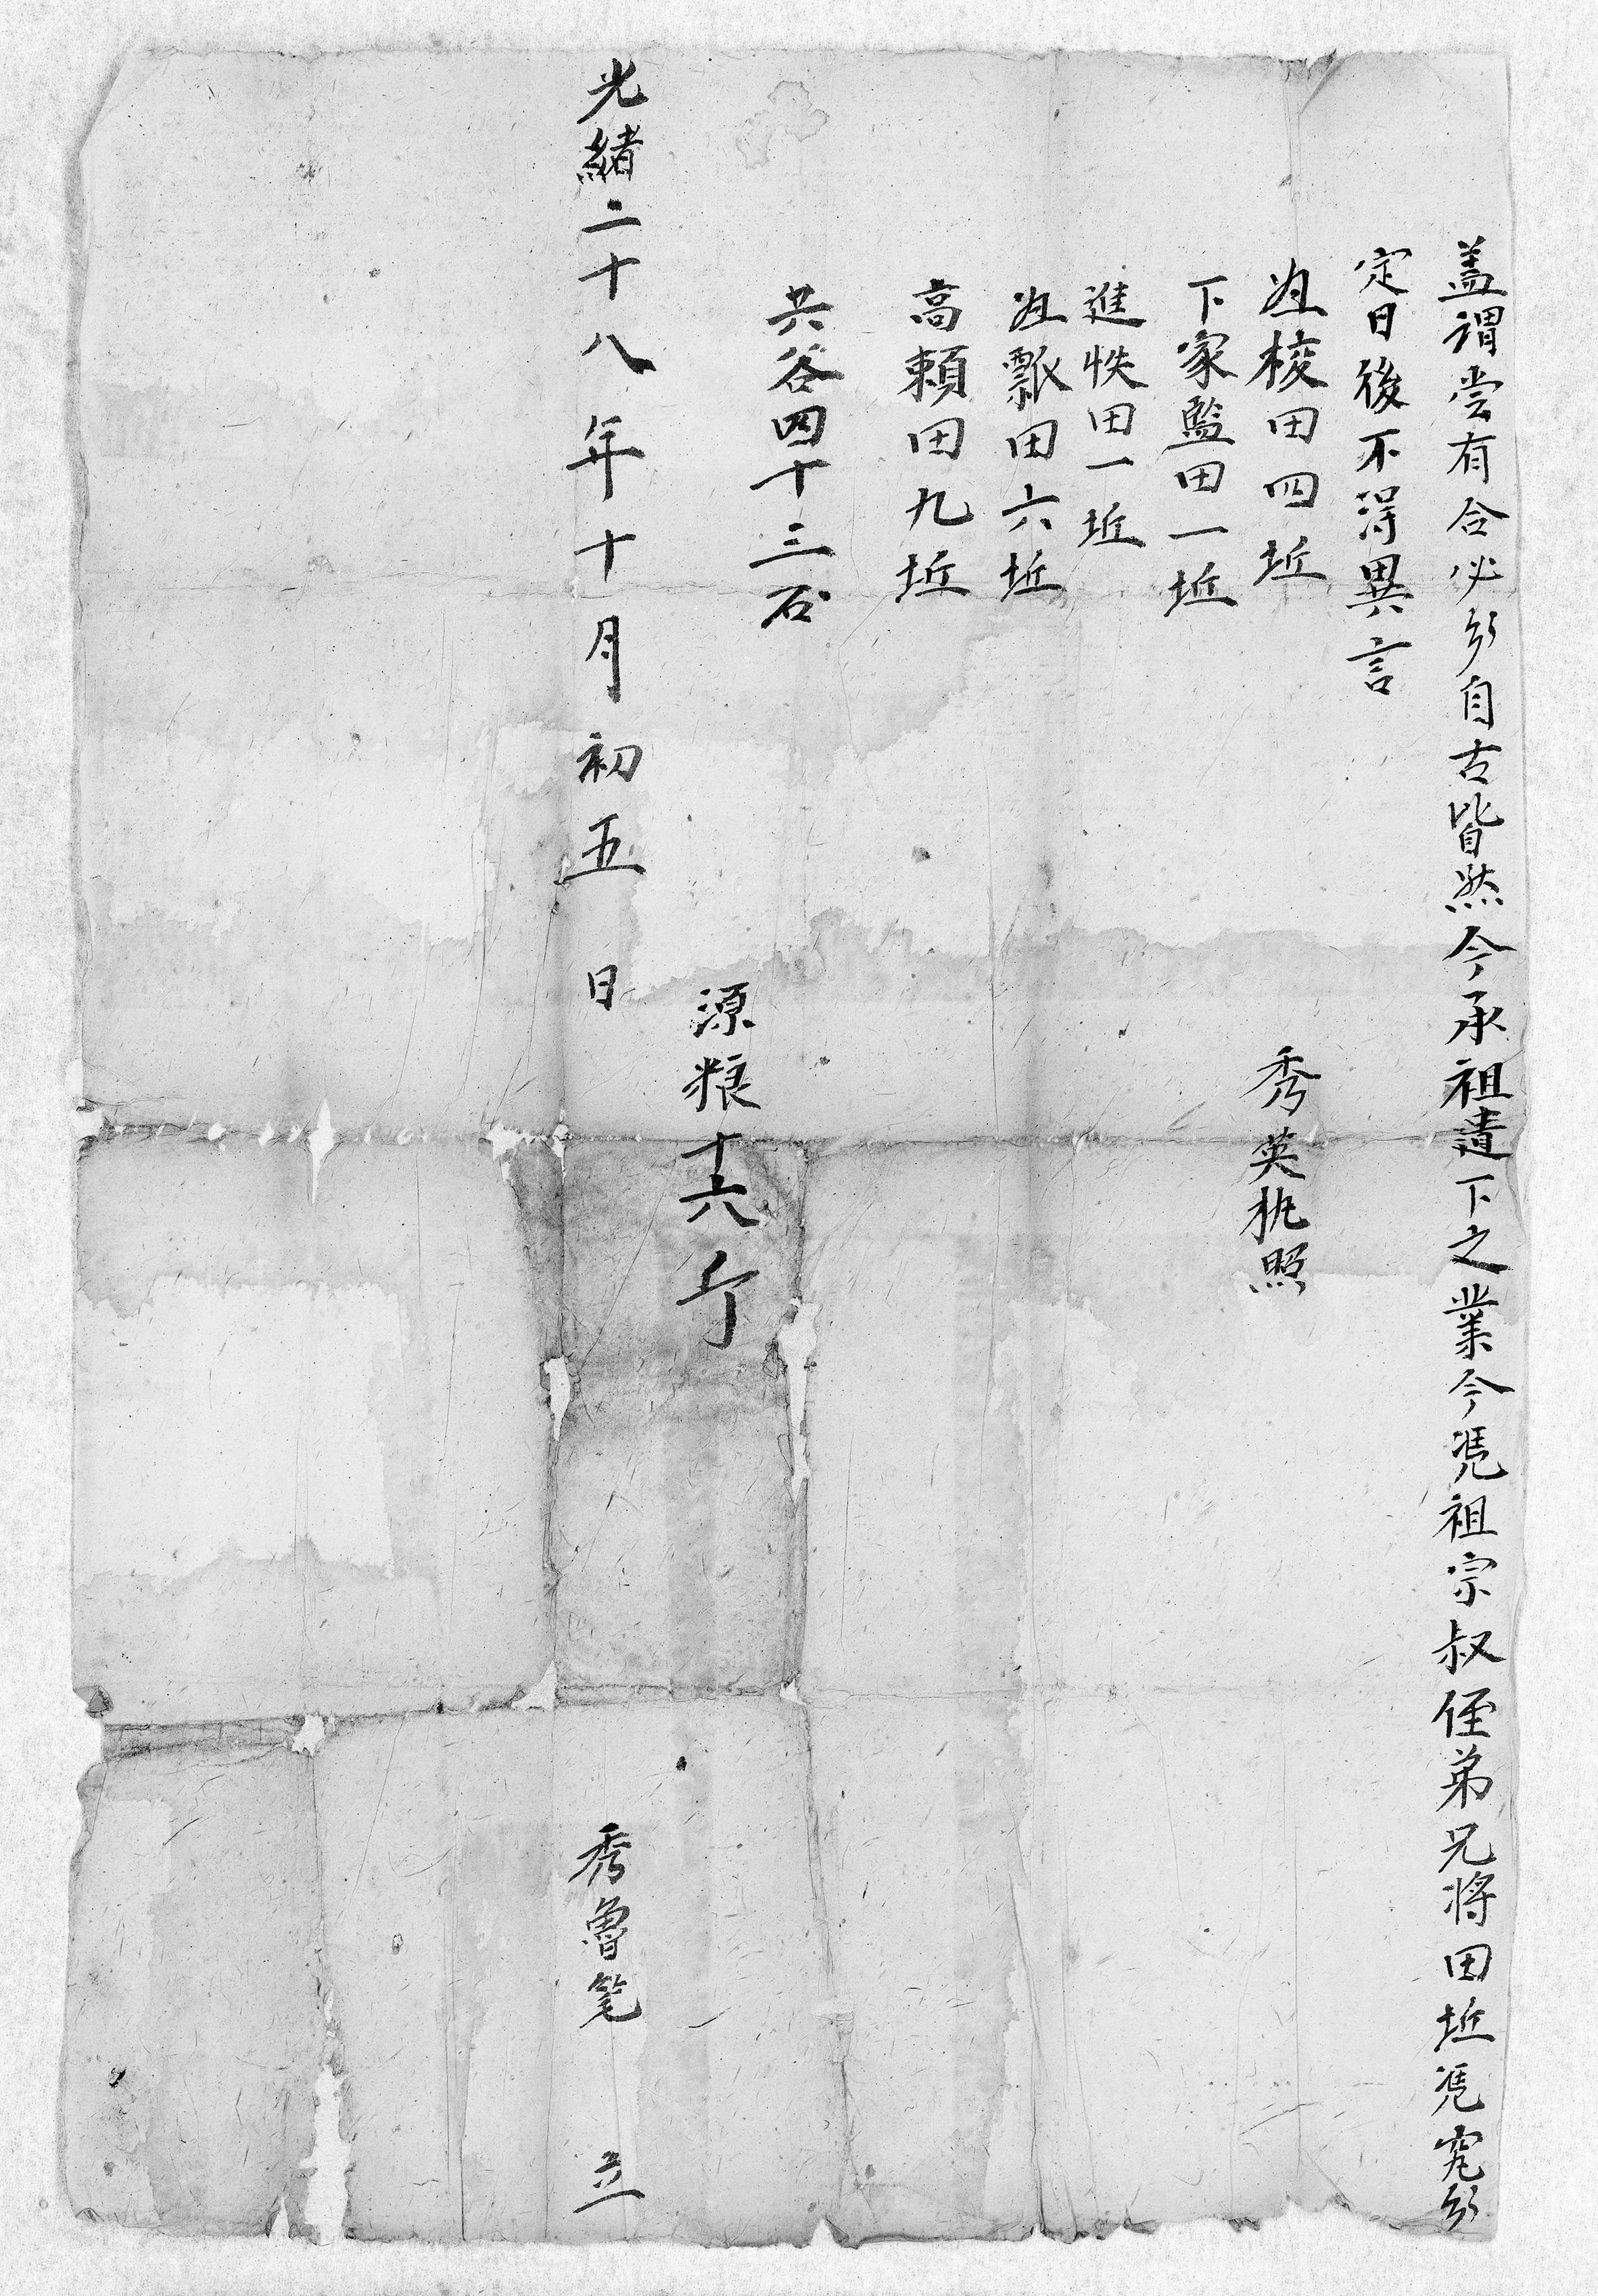 盖谓尝有合必分自古皆然今承祖遗下之業今凴祖宗叔侄弟兄将田坵凴究分
定日後不淂異言
秀英执照
梭田四坵
下家監田一坵
進怢田一坵
瓢田六坵
高頼田九坵
共谷四十三石
源粮十六斤
光緒二十八年十月初五日 秀魯笔 立